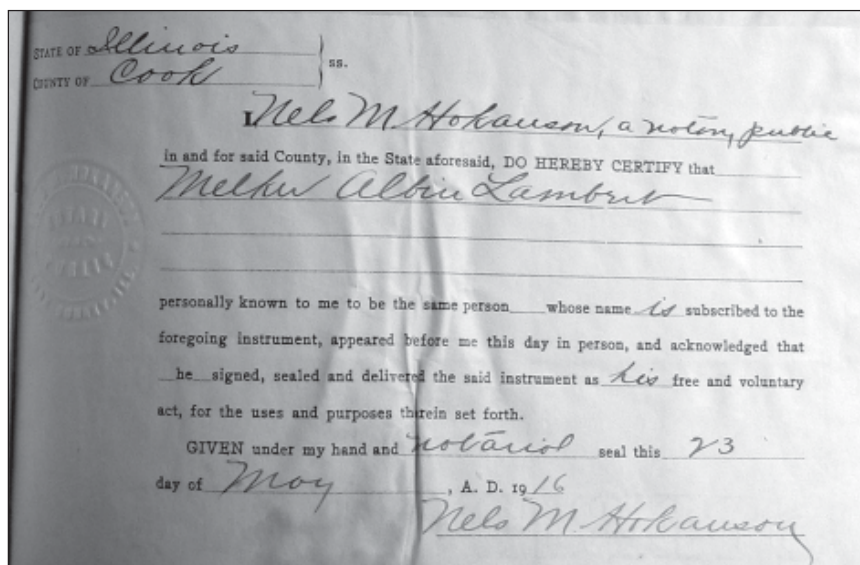 STATE OF Illinois
COUNTY OF Cook
ss.
I Nels M. Hokanson, a notary public
in and for said County, in the State aforesaid, DO HEREBY CERTIFY that
Melker Albin Lambert
personally known to me to be the same person whose name is subscribed to the
foregoing instrument, appeared before me this day in person, and acknowledged that
he signed, sealed and delivered the said instrument as his free and voluntary
act, for the uses and purposes therein set forth.
GIVEN under my hand and notarial seal this 23
day of May, A. D. 1916
Nels M. Hokanson
NOTARY
PUBLIC